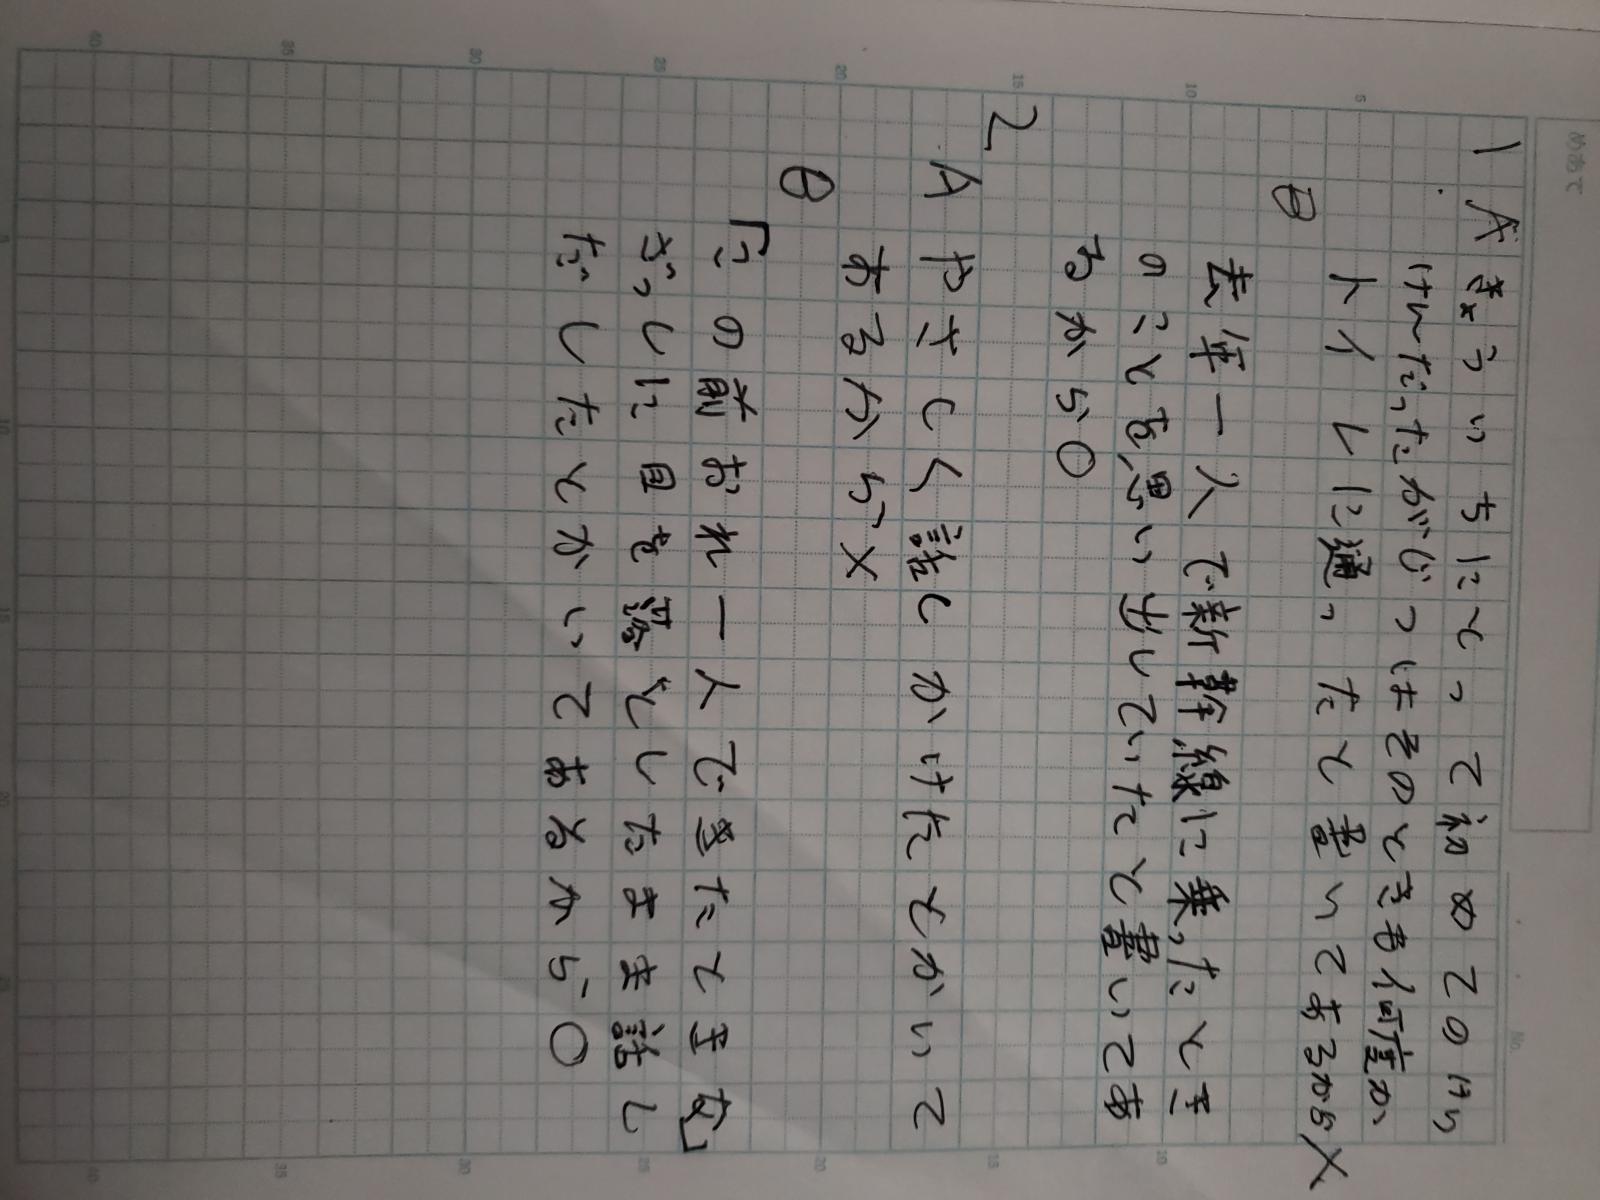 めあて
No.
1
A きょういちにとって初めてのけい
けんだったがじつはそのときも何度か
トイレに通ったと書いてあるから×
B
去年一人で新幹線に乗ったとき
のことを思い出していたと書いてあ
るから○
2
A やさしく話しかけたとかいて
あるから×
B
「この前おれ一人できたとき な」
ざっしに目を落としたまま話し
だしたとかいてあるから○